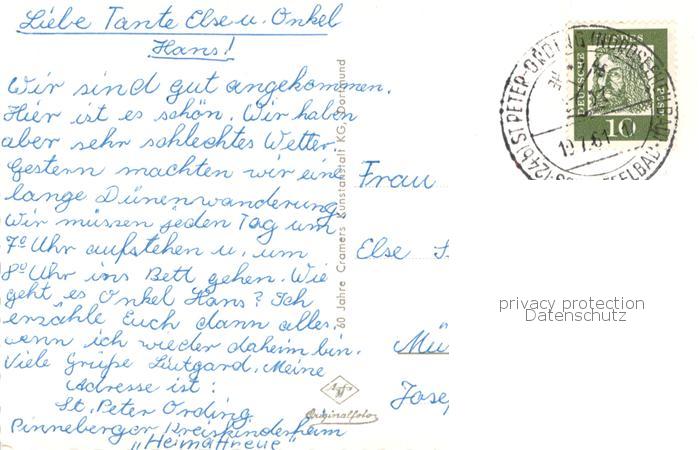 Liebe Tante Else u. Onkel
Hans!
Wir sind gut angekommen.
Hier ist es schön. Wir haben
aber sehr schlechtes Wetter.
Gestern machten wir eine
lange Dünenwanderung.
Wir müssen jeden Tag um
7⁰ Uhr aufstehen u. um
8⁰ Uhr ins Bett gehen. Wie
geht es Onkel Hans? Ich
erzähle Euch dann alles,
wenn ich wieder daheim bin.
Viele Grüße Lütgard. Meine
Adresse ist:
St. Peter Ording
Pinneberger Kreiskinderheim
"Heimattreue"
60 Jahre Cramers Kunstanstalt KG, Dortmund
Frau
Else
Mü
Jose
Agfa
Originalfoto
DEUTSCHE BUNDESPOST
10
(24b) ST. PETER-ORDING (NORDSEE)
privacy protection
Datenschutz